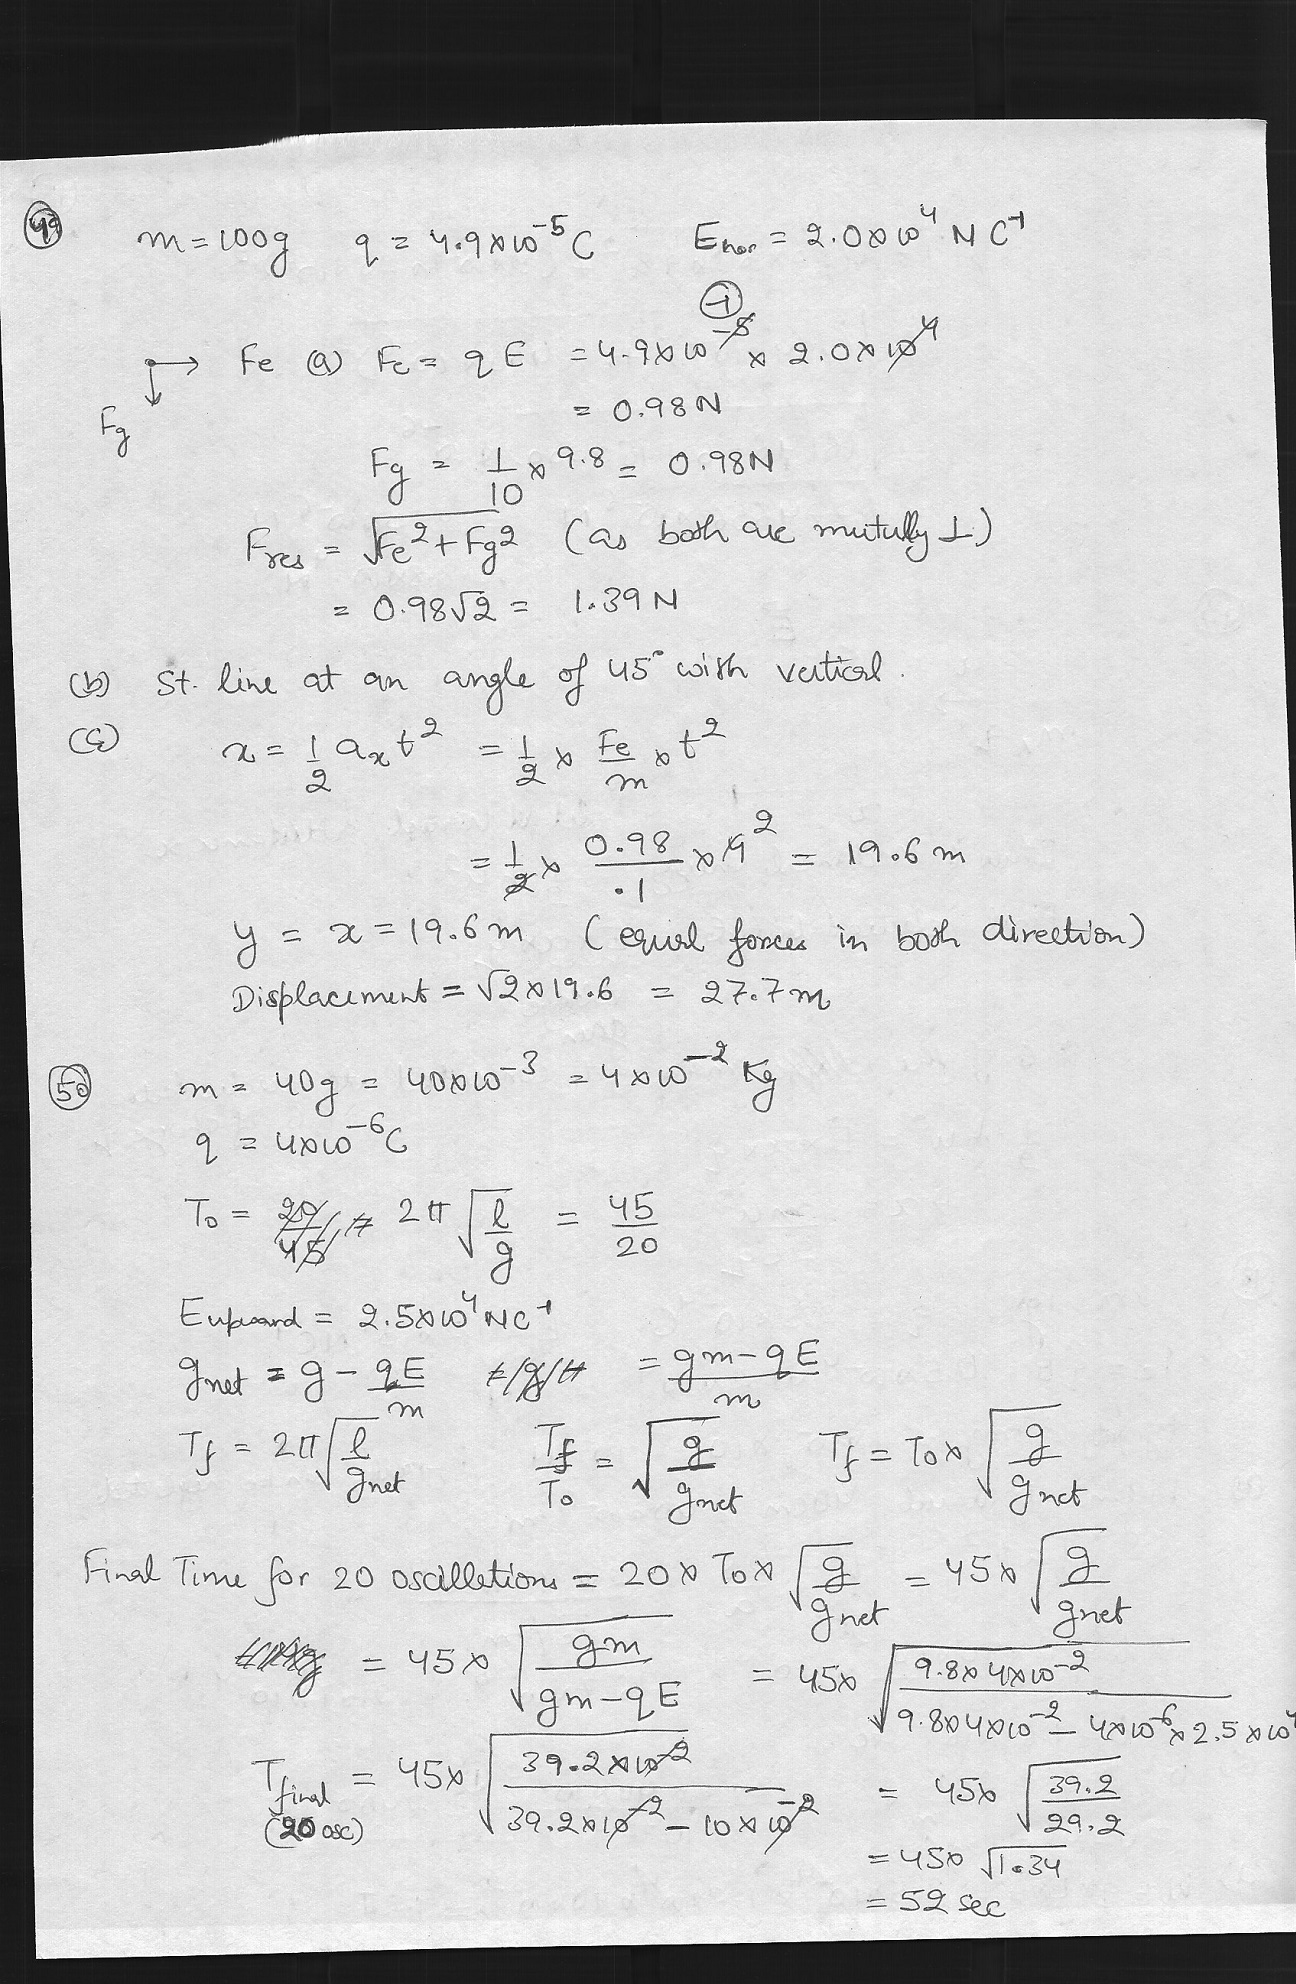 49 m = 100g q = 4.9×10⁻⁵ C E_hor = 2.0×10⁴ N C⁻¹
-1
Fe (a) Fe = qE = 4.9×10⁻⁵ × 2.0×10⁴
Fg = 0.98 N
Fg = 1/10 × 9.8 = 0.98N
Fres = √(Fe² + Fg²) (as both are mutully ⊥)
= 0.98√2 = 1.39 N
(b) St. line at an angle of 45° with vertical.
(c) x = 1/2 aₓt² = 1/2 × Fe/m × t²
= 1/2 × 0.98/.1 × 2 = 19.6 m
y = x = 19.6 m (equal forces in both direction)
Displacement = √2×19.6 = 27.7 m
50 m = 40g = 40×10⁻³ = 4×10⁻² Kg
q = 4×10⁻⁶ C
T₀ = 2π√(l/g) = 45/20
Eupward = 2.5×10⁴ NC⁻¹
gnet = g − qE/m = (gm − qE)/m
Tf = 2π√(l/gnet) Tf/T₀ = √(g/gnet) Tf = T₀ × √(g/gnet)
Final Time for 20 oscilletions = 20 × T₀ × √(g/gnet) = 45 × √(g/gnet)
= 45 × √(gm/(gm − qE)) = 45× √(9.8×4×10⁻²/(9.8×4×10⁻² − 4×10⁻⁶×2.5×10⁴))
Tfinal (20 osc) = 45× √(39.2×10⁻²/(39.2×10⁻² − 10×10⁻²)) = 45× √(39.2/29.2)
= 45× √1.34
= 52 sec